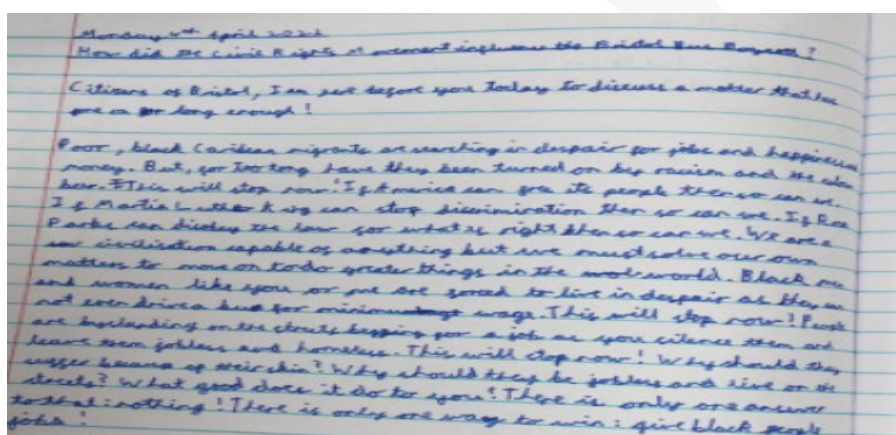 Monday 4th April 2022
How did the Civil Rights Movement influence the Bristol Bus Boycott?
Citizens of Bristol, I am here before you today to discuss a matter that has
gone on for long enough!
Poor, black Caribean migrants are searching in despair for jobs and happiness
money. But, for too long have they been turned on by racism and the colour
bar. This will stop now! If America can free its people then so can we.
If Martin Luther King can stop discrimination then so can we. If Rosa
Parks can disobey the law for what is right then so can we. We are a
civilisation capable of anything but we must solve our own
matters to move on to do greater things in the world. Black men
and women like you or me are forced to live in despair as they can
not even drive a bus for minimum wage. This will stop now! People
are on the streets begging for a job as you silence them and
leave them jobless and homeless. This will stop now! Why should they
suffer because of their skin? Why should they be jobless and live on the
streets? What good does it do to you? There is only one answer
to that: nothing! There is only one way to win: give black people
jobs!